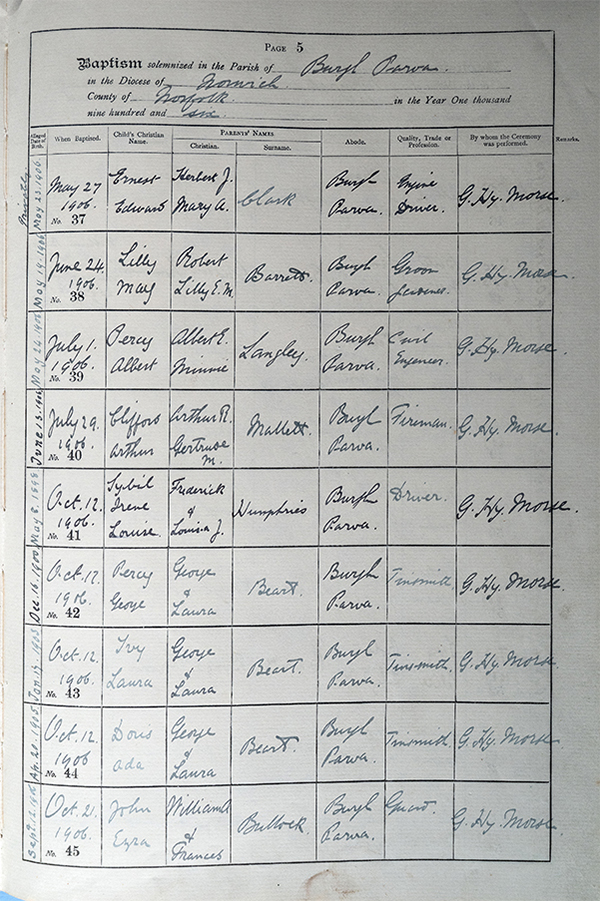 PAGE 5
Baptism solemnized in the Parish of Burgh Parva.
in the Diocese of Norwich
County of Norfolk in the Year One thousand
nine hundred and six.
Alleged Date of Birth. When Baptised. Child's Christian Name. PARENTS' NAMES Christian. Surname. Abode. Quality, Trade or Profession. By whom the Ceremony was performed. Remarks.
Privately May 23. 1906. May 27 Ernest Herbert J. Clark Burgh Engine G. Hy. Morse.
1906. Edward Mary A. Parva. Driver.
No. 37
May 19. 1906 June 24. Lilly Robert Barrett. Burgh Groom G. Hy. Morse.
1906. May Lilly E. M. Parva. Gardener.
No. 38
May 24. 1906 July 1. Percy Albert E. Langley. Burgh Civil G. Hy. Morse.
1906. Albert Minnie Parva. Engineer.
No. 39
June 13. 1906 July 29. Clifford Arthur R. Mallett. Burgh Fireman. G. Hy. Morse.
1906. Arthur Gertrude M. Parva.
No. 40
May 8. 1898 Oct. 12. Sybil Frederick Humphries Burgh Driver. G. Hy. Morse.
1906. Irene & Parva.
No. 41 Louise. Louisa J.
Dec. 16. 1900 Oct. 12. Percy George Beart. Burgh Tinsmith G. Hy. Morse.
1906. George & Laura Parva.
No. 42
1903 Oct. 12. Ivy George Beart. Burgh Tinsmith. G. Hy. Morse.
1906. Laura & Laura Parva.
No. 43
1905 Oct. 12. Doris George Beart. Burgh Tinsmith G. Hy. Morse.
1906 Ada & Laura Parva.
No. 44
Oct. 21. John William Bullock. Burgh Guard. G. Hy. Morse.
1906. Ezra & Frances Parva.
No. 45